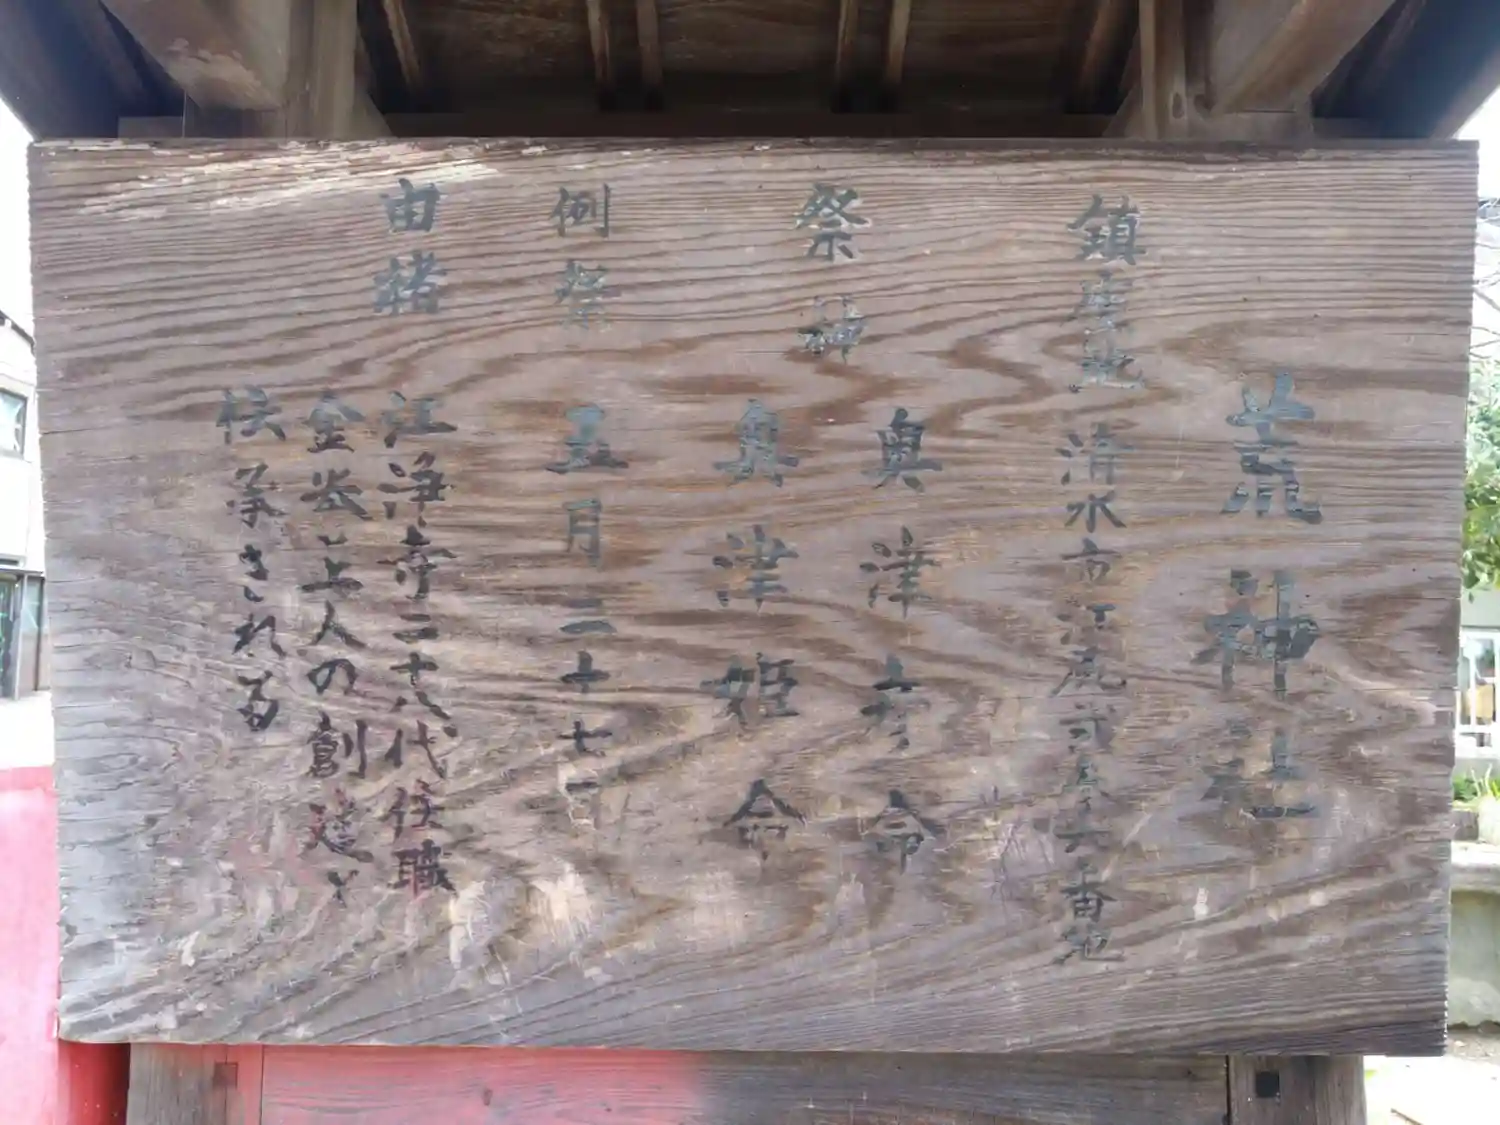 荒神社
鎮座地 清水市江尻弐 六番地
祭神 奥津彦命
奥津姫命
例祭 五月二十七日
由緒 江浄寺二十八代住職
金 上人の創建と
伝承される